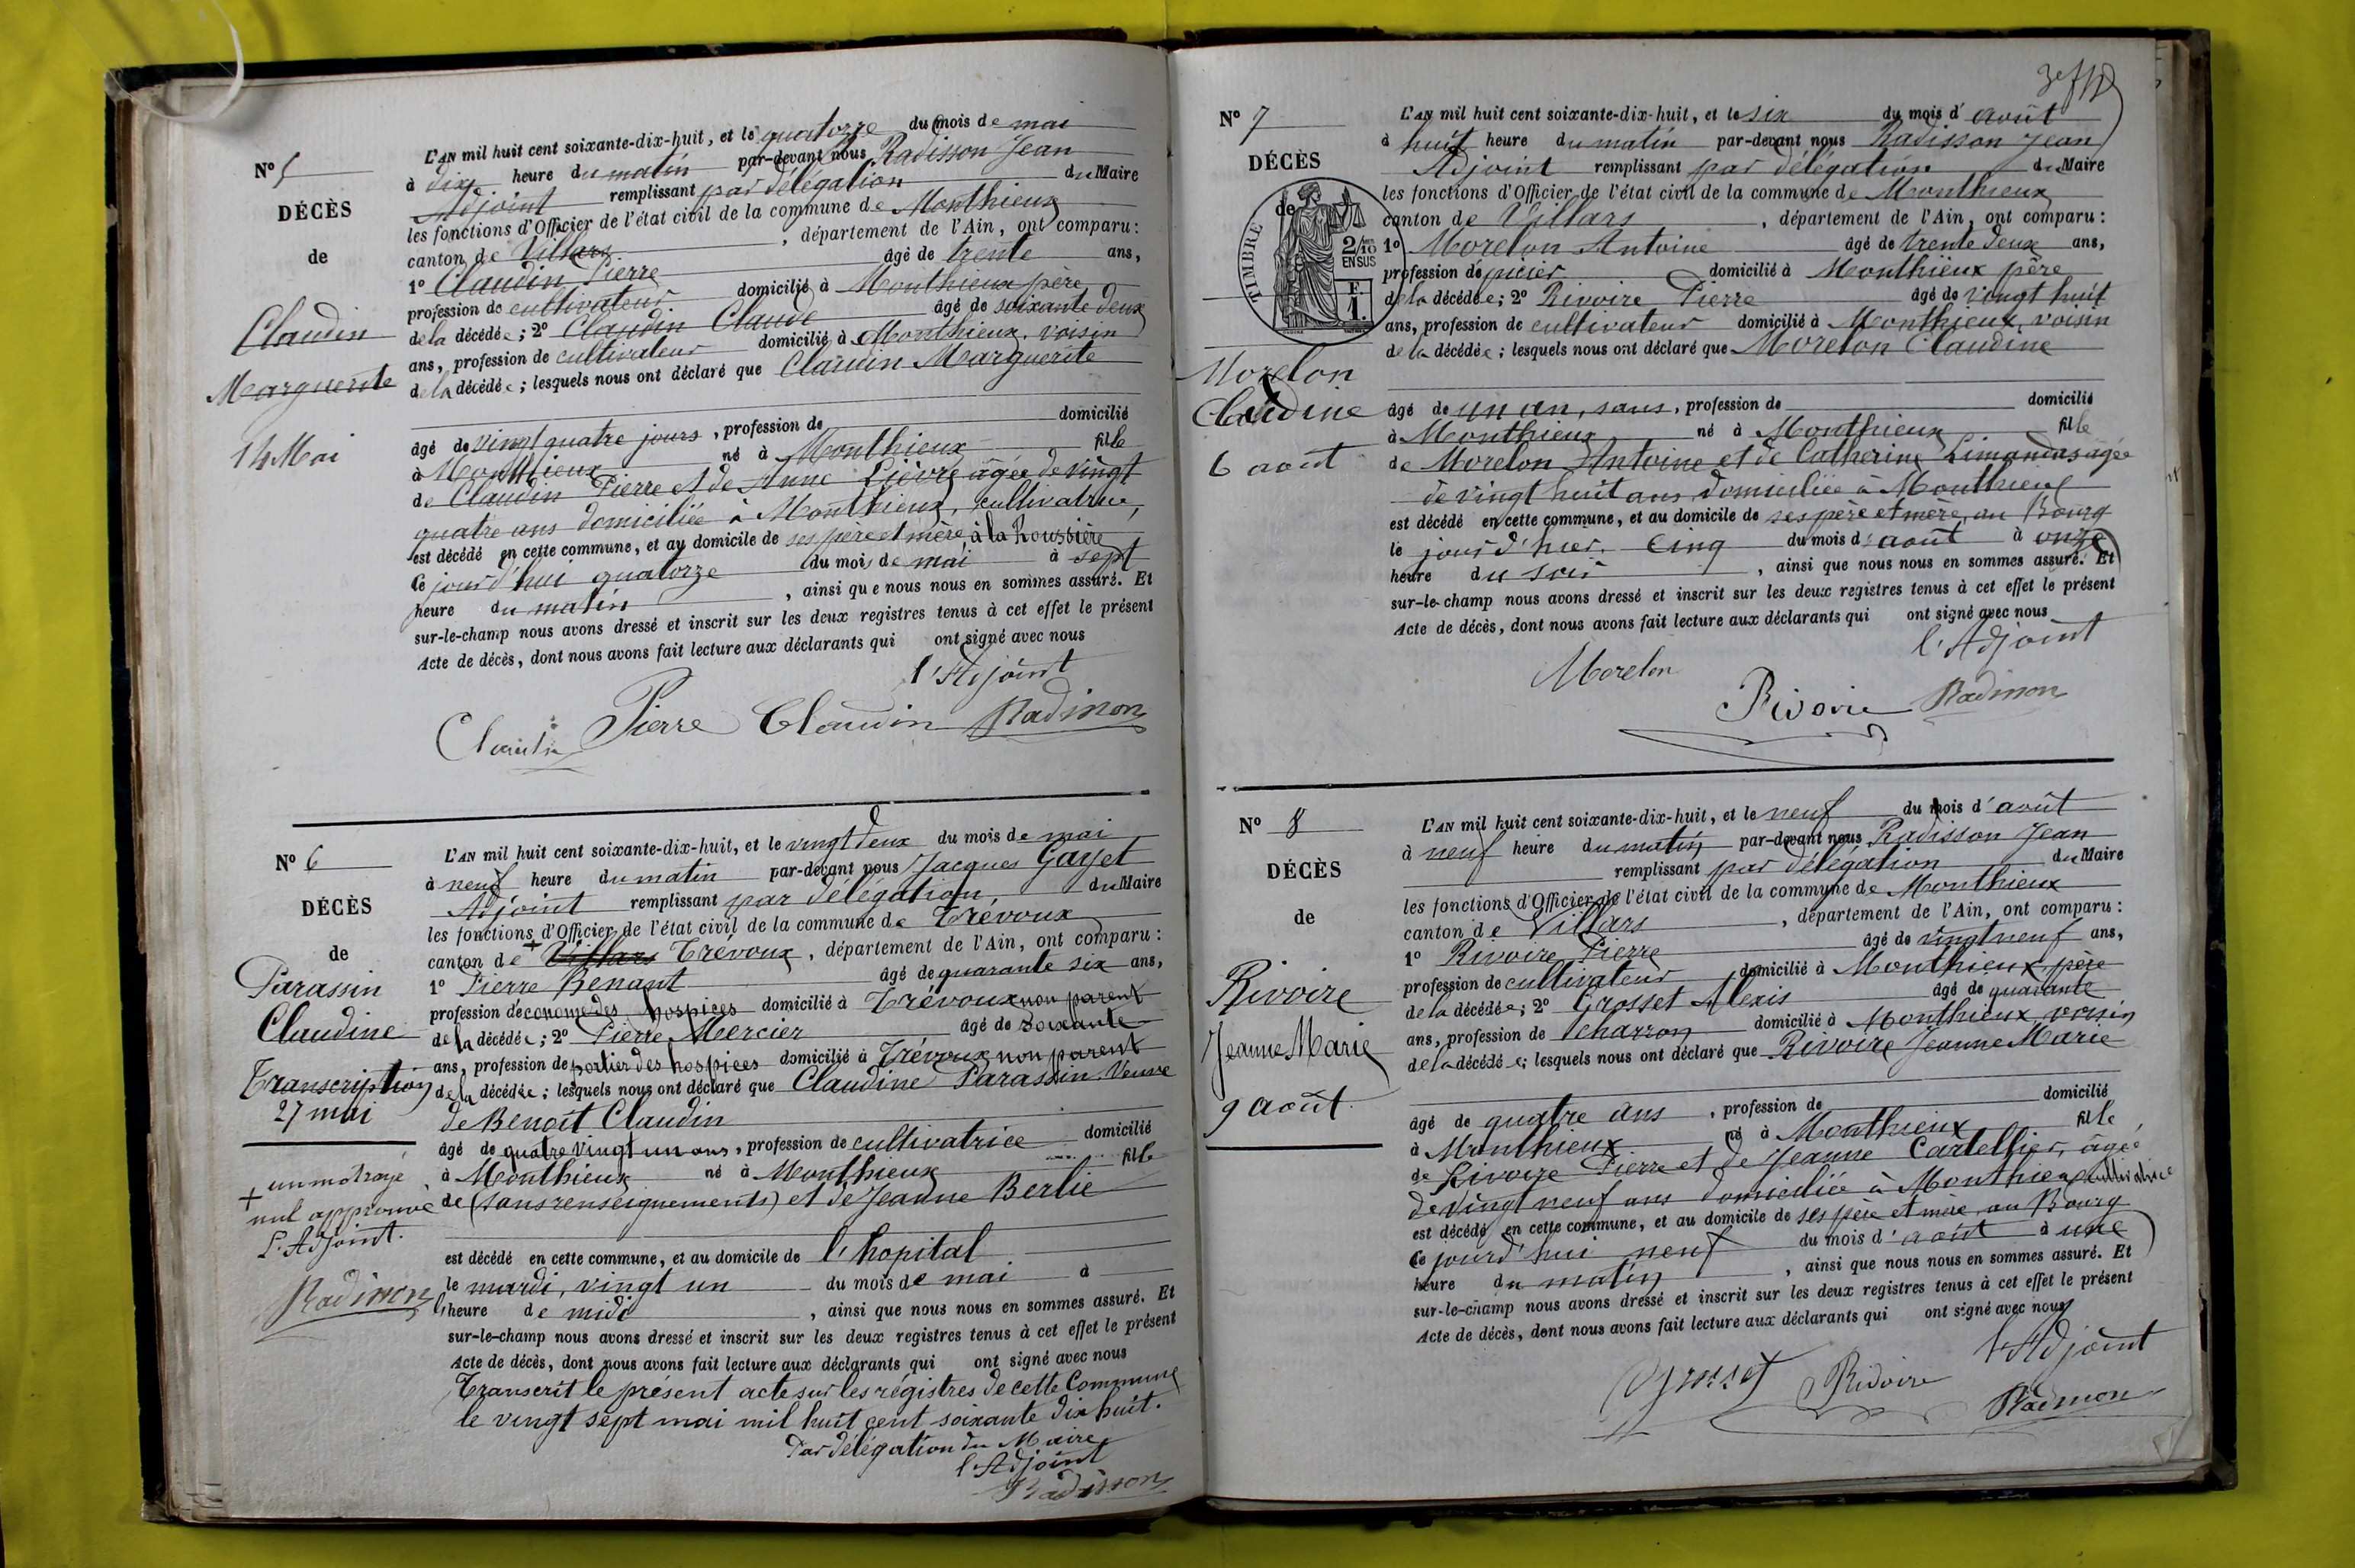 N° 5
DÉCÈS
de
Claudin
Marguerite
14 Mai
L'AN mil huit cent soixante-dix-huit, et le quatorze du mois de mai
à dix heure du matin par-devant nous Radisson Jean
Adjoint remplissant par délégation du Maire
les fonctions d'Officier de l'état civil de la commune de Monthieux
canton de Villars , département de l'Ain, ont comparu :
1° Claudin Pierre âgé de trente ans,
profession de cultivateur domicilié à Monthieux père
de la décédée ; 2° Claudin Claude âgé de soixante deux
ans, profession de cultivateur domicilié à Monthieux, voisin
de la décédée ; lesquels nous ont déclaré que Claudin Marguerite
âgé de vingt quatre jours , profession de domicilié
à Monthieux né à Monthieux fille
de Claudin Pierre et de Anne Lièvre âgée de vingt
quatre ans domiciliée à Monthieux, cultivatrice,
est décédé en cette commune, et au domicile de ses père et mère, à la Roussière
Ce jourd'hui quatorze du mois de mai à sept
heure du matin , ainsi que nous nous en sommes assuré. Et
sur-le-champ nous avons dressé et inscrit sur les deux registres tenus à cet effet le présent
Acte de décès, dont nous avons fait lecture aux déclarants qui ont signé avec nous
l'Adjoint
Claudin Pierre Claudin Radisson
N° 6
DÉCÈS
de
Parassin
Claudine
Transcription
27 mai
+ un mot rayé
nul approuvé
L'Adjoint.
Radisson
L'AN mil huit cent soixante-dix-huit, et le vingt deux du mois de mai
à neuf heure du matin par-devant nous Jacques Gayet
Adjoint remplissant par délégation, du Maire
les fonctions d'Officier de l'état civil de la commune de Trévoux
canton de + Villars Trévoux , département de l'Ain, ont comparu :
1° Pierre Benant âgé de quarante six ans,
profession d'économe des hospices domicilié à Trévoux non parent
de la décédée ; 2° Pierre Mercier âgé de soixante
ans, profession de portier des hospices domicilié à Trévoux non parent
de la décédée ; lesquels nous ont déclaré que Claudine Parassin Veuve
de Benoît Claudin
âgé de quatre vingt un ans , profession de cultivatrice domicilié
à Monthieux né à Monthieux fille
de (sans renseignements) et de Jeanne Berlie
est décédé en cette commune, et au domicile de l'hopital
le mardi, vingt un du mois de mai à
l'heure de midi , ainsi que nous nous en sommes assuré. Et
sur-le-champ nous avons dressé et inscrit sur les deux registres tenus à cet effet le présent
Acte de décès, dont nous avons fait lecture aux déclarants qui ont signé avec nous
Transcrit le présent acte sur les régistres de cette Commune
le vingt sept mai mil huit cent soixante dix huit.
Par délégation du Maire
l'Adjoint
Radisson
N° 7
DÉCÈS
de
TIMBRE
2/10 EN SUS
F. 1.
Morelon
Claudine
6 août
L'AN mil huit cent soixante-dix-huit, et le six du mois d'août
à huit heure du matin par-devant nous Radisson Jean
Adjoint remplissant par délégation du Maire
les fonctions d'Officier de l'état civil de la commune de Monthieux
canton de Villars , département de l'Ain, ont comparu :
1° Morelon Antoine âgé de trente deux ans,
profession de domicilié à Monthieux père
de la décédée ; 2° Rivoire Pierre âgé de vingt huit
ans, profession de cultivateur domicilié à Monthieux, voisin
de la décédée ; lesquels nous ont déclaré que Morelon Claudine
âgé de un an, sans, profession de domicilié
à Monthieux né à Monthieux fille
de Morelon Antoine et de Catherine Limandas âgée
de vingt huit ans domiciliée à Monthieux
est décédé en cette commune, et au domicile de ses père et mère, au Bourg
le jour d'hier, Cinq du mois d'août à onze
heure du soir , ainsi que nous nous en sommes assuré. Et
sur-le-champ nous avons dressé et inscrit sur les deux registres tenus à cet effet le présent
Acte de décès, dont nous avons fait lecture aux déclarants qui ont signé avec nous
l'Adjoint
Morelon
Rivoire Radisson
N° 8
DÉCÈS
de
Rivoire
Jeanne Marie
9 août.
L'AN mil huit cent soixante-dix-huit, et le neuf du mois d'août
à neuf heure du matin par-devant nous Radisson Jean
remplissant par délégation du Maire
les fonctions d'Officier de l'état civil de la commune de Monthieux
canton de Villars , département de l'Ain, ont comparu :
1° Rivoire Pierre âgé de vingt neuf ans,
profession de cultivateur domicilié à Monthieux père
de la décédée ; 2° Grosset Alexis âgé de quarante
ans, profession de charron domicilié à Monthieux, voisin
de la décédée ; lesquels nous ont déclaré que Rivoire Jeanne Marie
âgé de quatre ans , profession de domicilié
à Monthieux né à Monthieux fille
de Rivoire Pierre et de Jeanne Cartellier, âgée
de vingt neuf ans domiciliée à Monthieux cultivatrice
est décédé en cette commune, et au domicile de ses père et mère, au Bourg
Ce jourd'hui neuf du mois d'août à une
heure du matin , ainsi que nous nous en sommes assuré. Et
sur-le-champ nous avons dressé et inscrit sur les deux registres tenus à cet effet le présent
Acte de décès, dont nous avons fait lecture aux déclarants qui ont signé avec nous
l'Adjoint
Grosset Rivoire Radisson